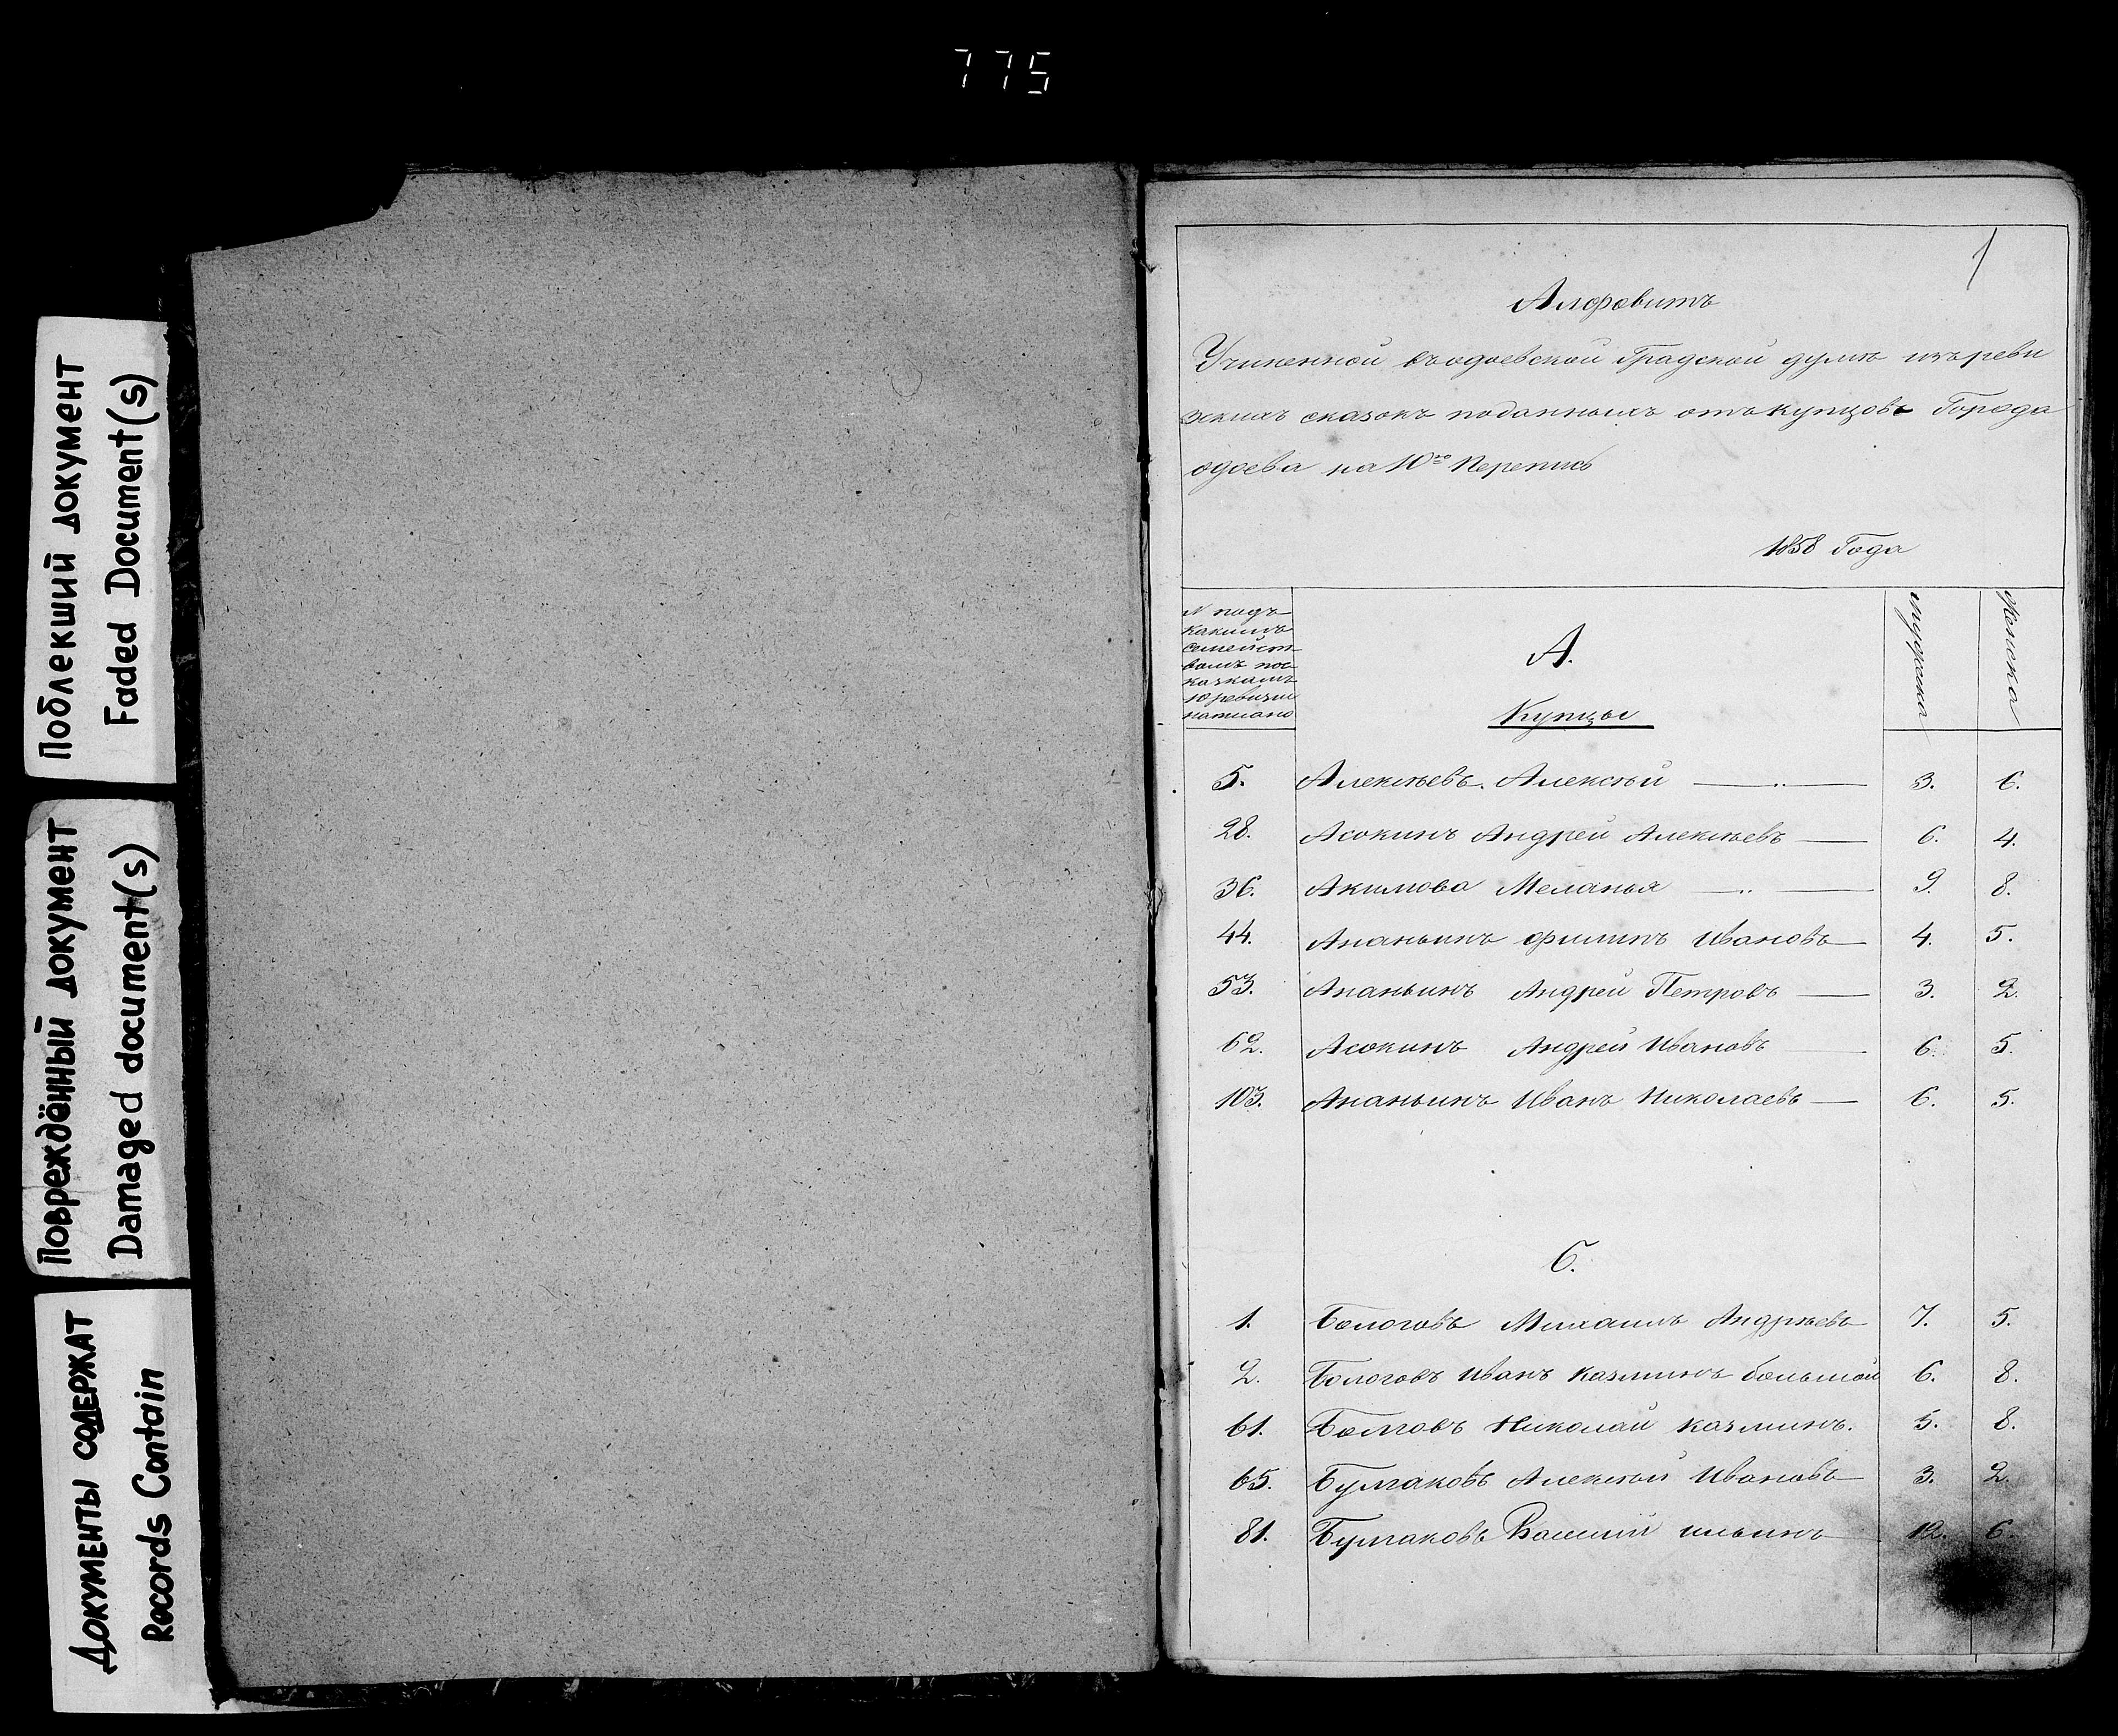 775
Поблекший документ
Faded Document(s)
Повреждённый документ
Damaged document(s)
Документы содержат
Records Contain
1
Алфовитъ
Учиненной въодоевской Градской думѣ изъреви
зскихъ сказокъ поданныхъ отъ купцовъ Города
одоева на 10ю Перепись
1858 Года
N подъ
какимъ
семейст
вомъ пос
казкамъ
10 ревизии
написано
А.
Купцы
мужеска
Женска
5. Алексѣевъ. Алексѣй 3. 6.
28. Асокинъ Андрей Алексѣевъ 6. 4.
36. Акимова Меланья 9. 8.
44. Ананьинъ Филипъ Ивановъ 4. 5.
53. Ананьинъ Андрей Петровъ 3. 2.
62. Асокинъ Андрей Ивановъ 6. 5.
103. Ананьинъ Иванъ Николаевъ 6. 5.
Б.
1. Бологовъ Михаилъ Андрѣевъ 7. 5.
2. Бологовъ Иванъ Казминъ большой 6. 8.
61. Болговъ Николай казминъ. 5. 8.
65. Булгаковъ Алексѣй Ивановъ 3. 2.
81. Булгаковъ Василий ильинъ 12. 6.